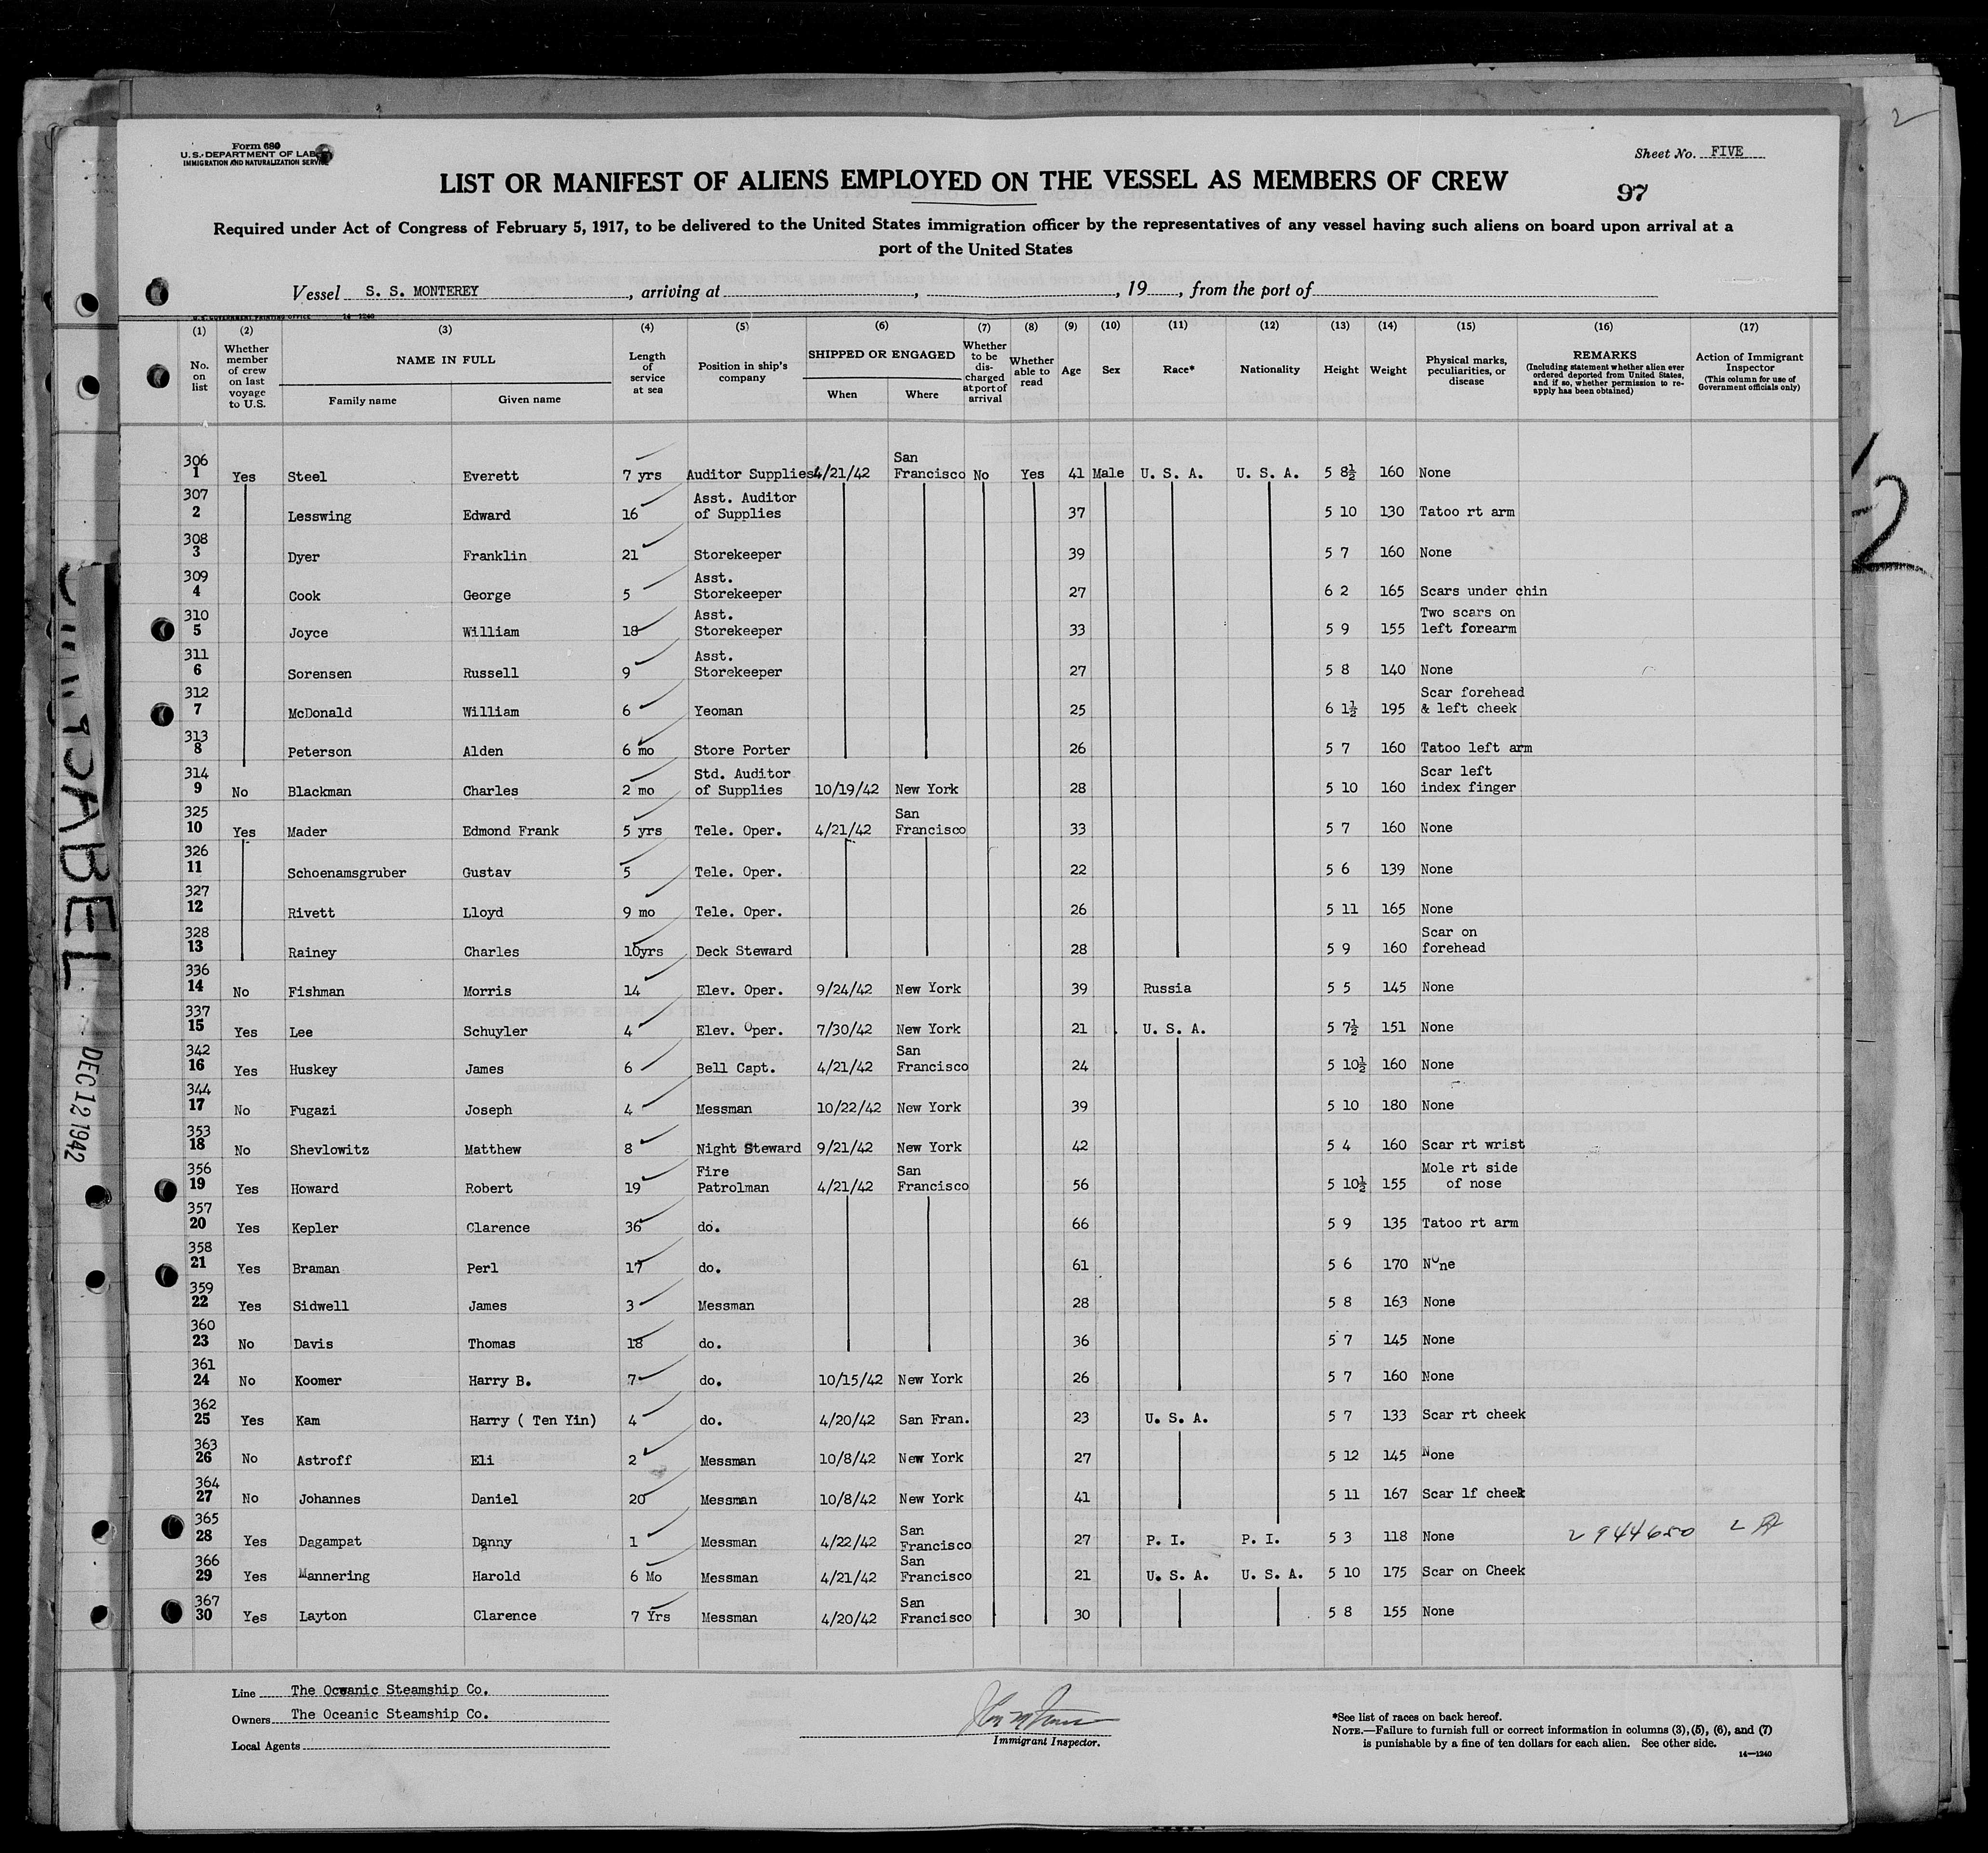 Form 680
U.S. DEPARTMENT OF LABOR
IMMIGRATION AND NATURALIZATION SERVICE
Sheet No. FIVE
LIST OR MANIFEST OF ALIENS EMPLOYED ON THE VESSEL AS MEMBERS OF CREW
97
Required under Act of Congress of February 5, 1917, to be delivered to the United States immigration officer by the representatives of any vessel having such aliens on board upon arrival at a
port of the United States
Vessel S. S. MONTEREY, arriving at , , 19 , from the port of
U. S. GOVERNMENT PRINTING OFFICE 14—1240
(1) (2) (3) (4) (5) (6) (7) (8) (9) (10) (11) (12) (13) (14) (15) (16) (17)
No. on list
Whether member of crew on last voyage to U.S.
NAME IN FULL
Family name
Given name
Length of service at sea
Position in ship's company
SHIPPED OR ENGAGED
When
Where
Whether to be discharged at port of arrival
Whether able to read
Age
Sex
Race*
Nationality
Height
Weight
Physical marks, peculiarities, or disease
REMARKS
(Including statement whether alien ever ordered deported from United States, and if so, whether permission to re-apply has been obtained)
Action of Immigrant Inspector
(This column for use of Government officials only)
306 1 Yes Steel Everett 7 yrs Auditor Supplies 4/21/42 San Francisco No Yes 41 Male U. S. A. U. S. A. 5 8½ 160 None
307 2 Lesswing Edward 16 Asst. Auditor of Supplies 37 5 10 130 Tatoo rt arm
308 3 Dyer Franklin 21 Storekeeper 39 5 7 160 None
309 4 Cook George 5 Asst. Storekeeper 27 6 2 165 Scars under chin
310 5 Joyce William 18 Asst. Storekeeper 33 5 9 155 Two scars on left forearm
311 6 Sorensen Russell 9 Asst. Storekeeper 27 5 8 140 None
312 7 McDonald William 6 Yeoman 25 6 1½ 195 Scar forehead & left cheek
313 8 Peterson Alden 6 mo Store Porter 26 5 7 160 Tatoo left arm
314 9 No Blackman Charles 2 mo Std. Auditor of Supplies 10/19/42 New York 28 5 10 160 Scar left index finger
325 10 Yes Mader Edmond Frank 5 yrs Tele. Oper. 4/21/42 San Francisco 33 5 7 160 None
326 11 Schoenamsgruber Gustav 5 Tele. Oper. 22 5 6 139 None
327 12 Rivett Lloyd 9 mo Tele. Oper. 26 5 11 165 None
328 13 Rainey Charles 10yrs Deck Steward 28 5 9 160 Scar on forehead
336 14 No Fishman Morris 14 Elev. Oper. 9/24/42 New York 39 Russia 5 5 145 None
337 15 Yes Lee Schuyler 4 Elev. Oper. 7/30/42 New York 21 U. S. A. 5 7½ 151 None
342 16 Yes Huskey James 6 Bell Capt. 4/21/42 San Francisco 24 5 10½ 160 None
344 17 No Fugazi Joseph 4 Messman 10/22/42 New York 39 5 10 180 None
353 18 No Shevlowitz Matthew 8 Night Steward 9/21/42 New York 42 5 4 160 Scar rt wrist
356 19 Yes Howard Robert 19 Fire Patrolman 4/21/42 San Francisco 56 5 10½ 155 Mole rt side of nose
357 20 Yes Kepler Clarence 36 do. 66 5 9 135 Tatoo rt arm
358 21 Yes Braman Perl 17 do. 61 5 6 170 None
359 22 Yes Sidwell James 3 Messman 28 5 8 163 None
360 23 No Davis Thomas 18 do. 36 5 7 145 None
361 24 No Koomer Harry B. 7 do. 10/15/42 New York 26 5 7 160 None
362 25 Yes Kam Harry ( Ten Yin) 4 do. 4/20/42 San Fran. 23 U. S. A. 5 7 133 Scar rt cheek
363 26 No Astroff Eli 2 Messman 10/8/42 New York 27 5 12 145 None
364 27 No Johannes Daniel 20 Messman 10/8/42 New York 41 5 11 167 Scar lf cheek
365 28 Yes Dagampat Danny 1 Messman 4/22/42 San Francisco 27 P. I. P. I. 5 3 118 None 2944680
366 29 Yes Mannering Harold 6 Mo Messman 4/21/42 San Francisco 21 U. S. A. U. S. A. 5 10 175 Scar on Cheek
367 30 Yes Layton Clarence 7 Yrs Messman 4/20/42 San Francisco 30 5 8 155 None
Line The Oceanic Steamship Co.
Owners The Oceanic Steamship Co.
Local Agents
Immigrant Inspector.
*See list of races on back hereof.
NOTE.—Failure to furnish full or correct information in columns (3), (5), (6), and (7)
is punishable by a fine of ten dollars for each alien. See other side.
14—1240
DEC 12 1942
2